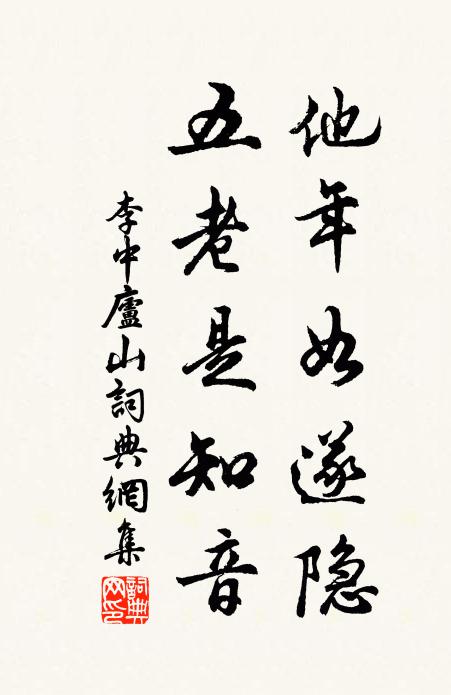 他年如遂隐
五老是知音
李中廬山詞典網集
詞典网印